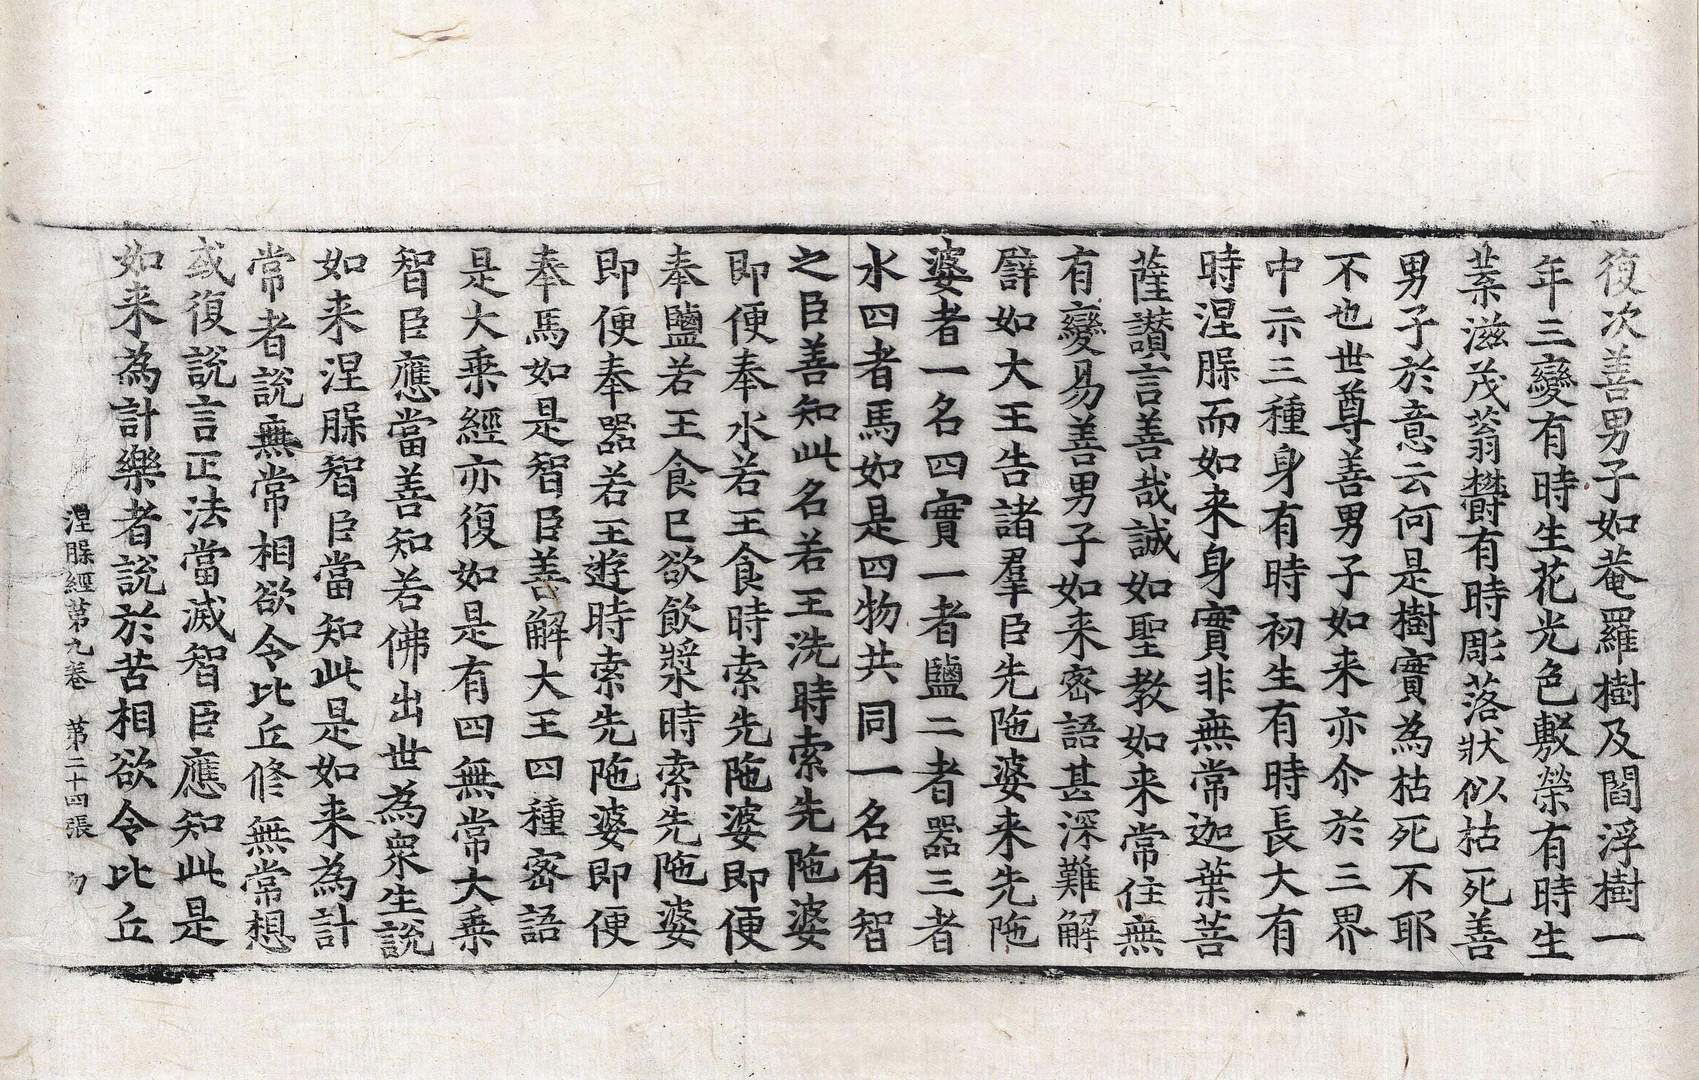 復次善男子如菴羅樹及閻浮樹一
年三變有時生花光色敷榮有時生
葉滋茂蓊欝有時彫落狀似枯死善
男子於意云何是樹實為枯死不耶
不也世尊善男子如来亦尒於三界
中示三種身有時初生有時長大有
時涅槃而如来身實非無常迦葉菩
薩讃言善哉誠如聖教如来常住無
有變易善男子如来密語甚深難解
譬如大王告諸羣臣先陁婆来先陁
婆者一名四實一者鹽二者器三者
水四者馬如是四物共同一名有智
之臣善知此名若王洗時索先陁婆
即便奉水若王食時索先陁婆即便
奉鹽若王食已欲飲漿時索先陁婆
即便奉器若王遊時索先陁婆即便
奉馬如是智臣善解大王四種密語
是大乗經亦復如是有四無常大乗
智臣應當善知若佛出世為衆生說
如来涅槃智臣當知此是如来為計
常者說無常相欲令比丘修無常想
或復說言正法當滅智臣應知此是
如来為計樂者說於苦相欲令比丘
涅槃經第九卷 第二十四張